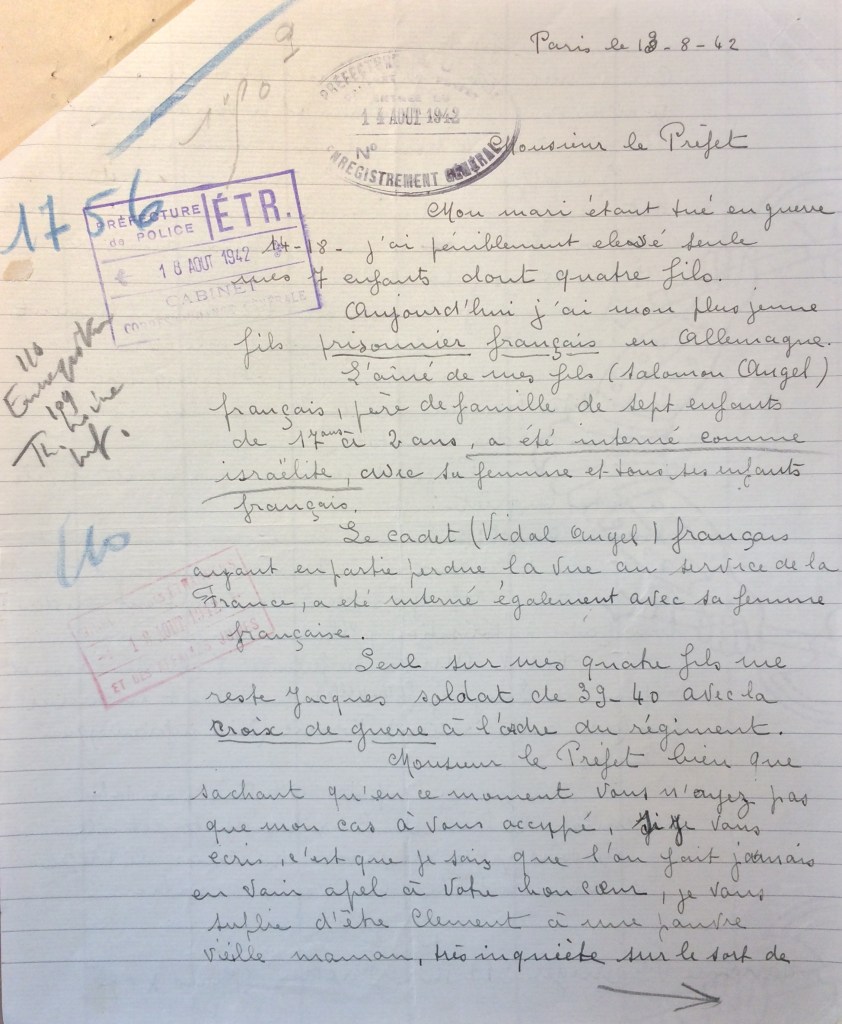 Paris le 13-8-42
PRÉFECTURE
14 AOUT 1942
No
ENREGISTREMENT GÉNÉRAL
Monsieur le Préfet
1756
PRÉFECTURE
de POLICE
ÉTR.
18 AOUT 1942
CABINET
Mon mari étant tué en guerre
14-18- j'ai péniblement elevé seule
mes 7 enfants dont quatre fils.
Aujourd'hui j'ai mon plus jeune
fils prisonnier français en Allemagne.
L'aîné de mes fils (Salomon Angel)
français, père de famille de sept enfants
de 17 ans à 2 ans, a été interné comme
israëlite, avec sa femme et tous ses enfants
français.
110
199
110
Le cadet (Vidal Angel) français
ayant en partie perdue la vue au service de la
France, a eté interné également avec sa femme
française.
Seul sur mes quatre fils me
reste Jacques soldat de 39-40 avec la
croix de guerre à l'ordre du régiment.
Monsieur le Préfet bien que
sachant qu'en ce moment vous n'ayez pas
que mon cas à vous occupé, si je vous
ecris, c'est que je sais que l'on fait jamais
en vain apel à votre bon cœur, je vous
suplie d'être clement à une pauvre
vieille maman, très inquiète sur le sort de